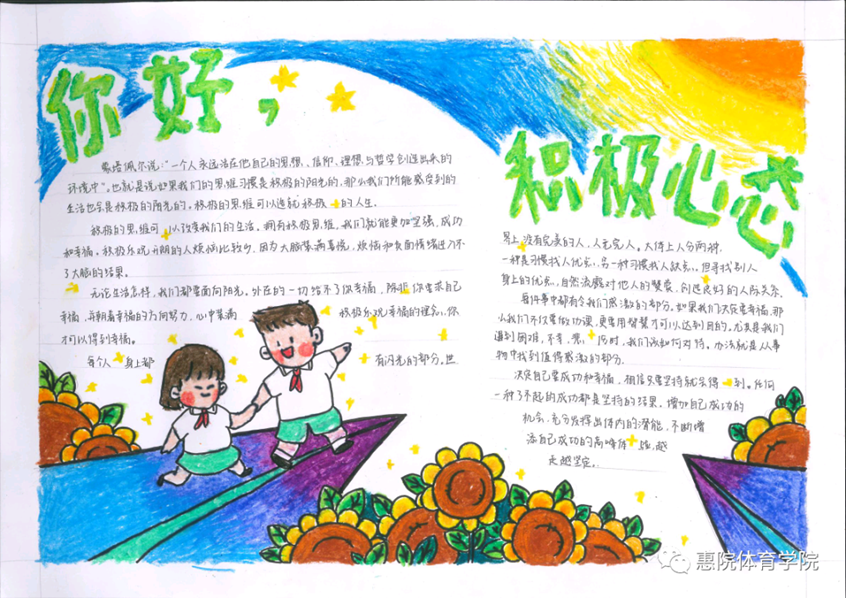 你好，
积极心态
蒙塔佩尔说："一个人永远活在他自己的思想、信仰、理想与哲学创造出来的
环境中"。也就是说如果我们的思维习惯是积极的阳光的，那么我们所能感受到的
生活也会是积极的阳光的。积极的思维可以造就积极的人生。
积极的思维可以改变我们的生活。拥有积极思维，我们就能更加坚强、成功
和幸福。积极乐观开朗的人烦恼比较少，因为大脑装满喜悦，烦恼和负面情绪进入不
了大脑的结果。
无论生活怎样，我们都要面向阳光。外在的一切给不了你幸福，除非你要求自己
幸福，并朝着幸福的方向努力，心中装满积极乐观幸福的理念，你
才可以得到幸福。
每个人身上都有闪光的部分。世
界上没有完美的人，人无完人。大体上人分两种，
一种是习惯找人优点，另一种习惯找人缺点。但寻找别人
身上的优点，自然流露对他人的赞赏，创造良好的人际关系。
每件事中都有令我们感激的部分。如果我们决定要幸福，那
么我们不仅要做功课，更要用智慧才可以达到目的。尤其是我们
遇到困难，不幸，恶 历时，我们该如何对待。办法就是从事
物中找到值得感激的部分。
决定自己要成功和幸福，相信只要坚持就会得到。任何
一种了不起的成功都是坚持的结果。增加自己成功的
机会，充分发挥出体内的潜能，不断增
添自己成功的高峰体验，越
走越坚定。
惠院体育学院